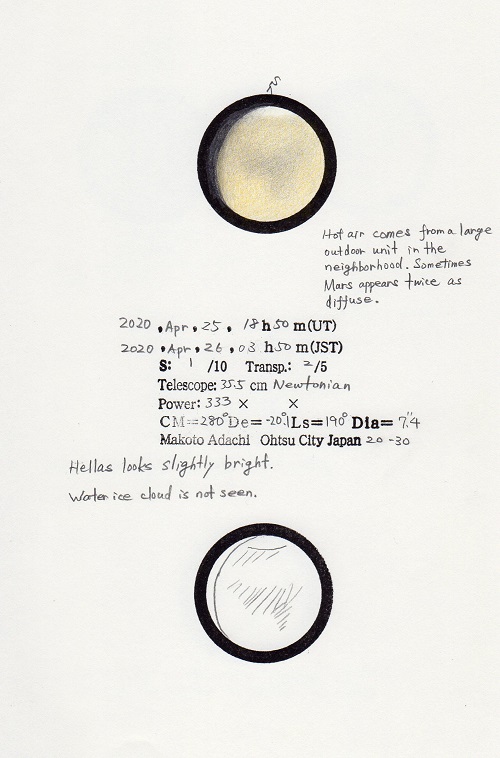 S
Hot air comes from a large
outdoor unit in the
neighborhood. Sometimes
Mars appears twice as
diffuse.
2020 . Apr . 25 . 18 h 50 m(UT)
2020 . Apr . 26 . 03 h 50 m(JST)
S: 1 /10 Transp.: 2/5
Telescope: 35.5 cm Newtonian
Power: 333 × ×
CM=280° De= -20.1 Ls=190° Dia= 7."4
Makoto Adachi Ohtsu City Japan 20 -30
Hellas looks slightly bright.
Water ice cloud is not seen.